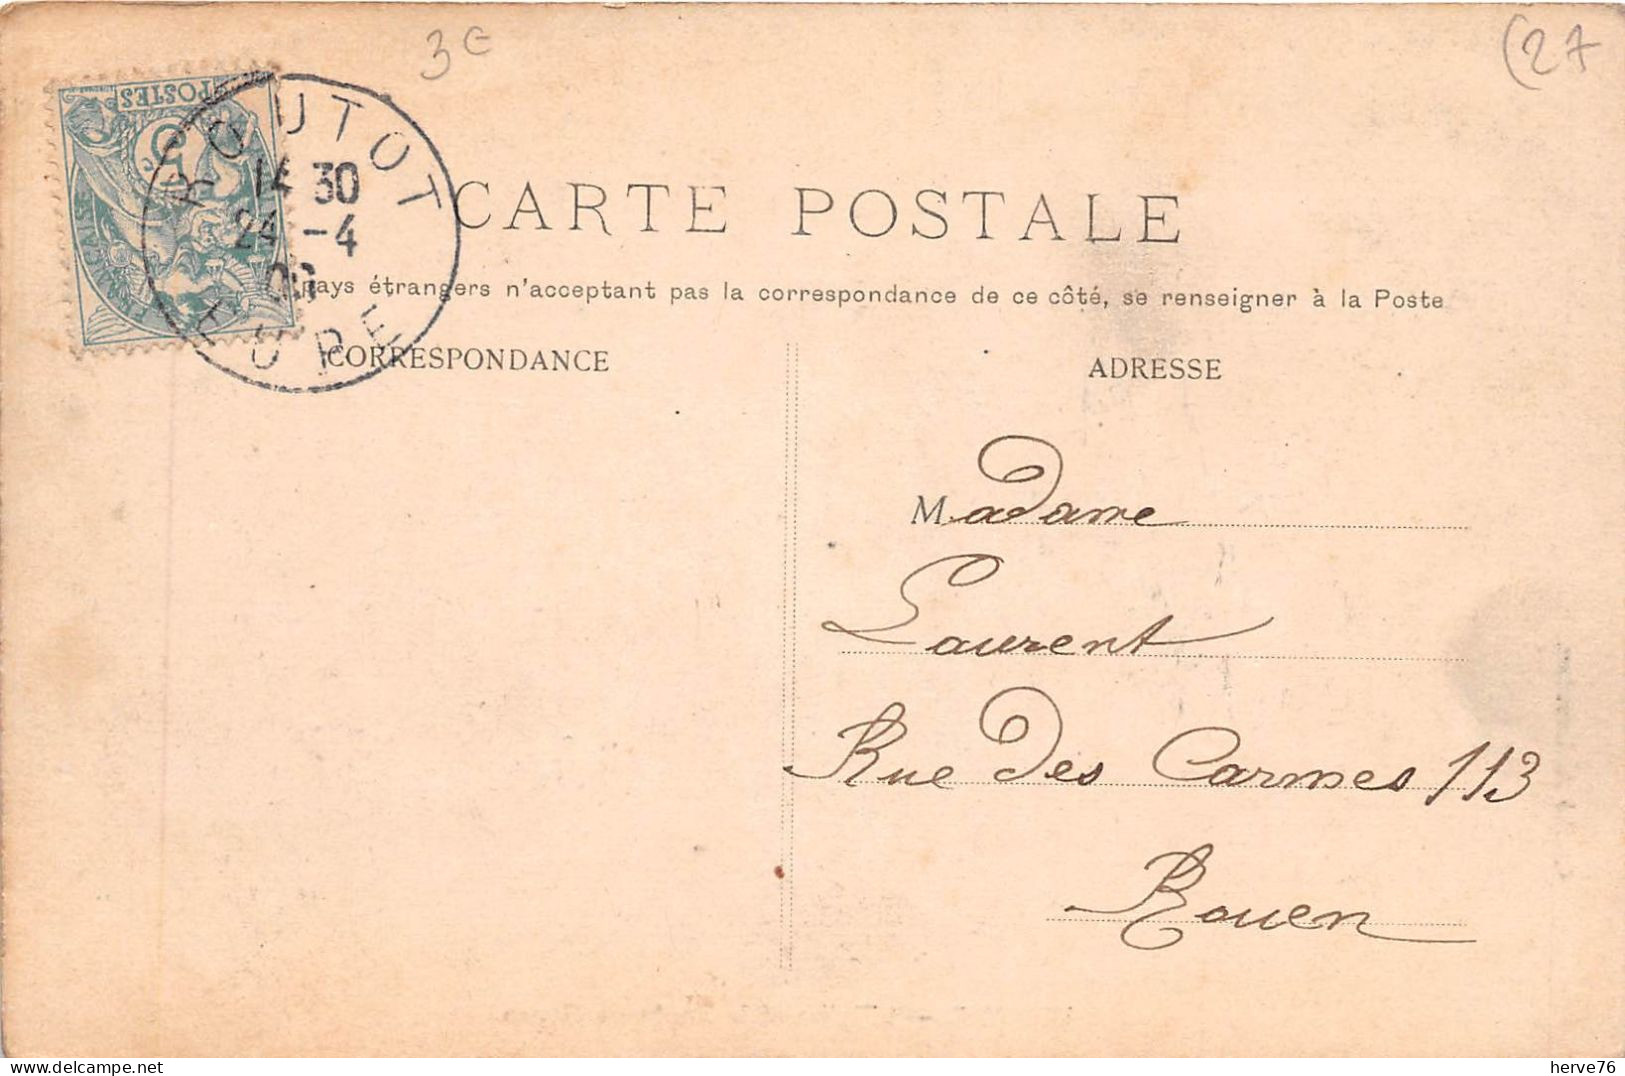 3€
(27
POSTES
5
c
FRANÇAISE
ROUTOT
14 30
24 -4
EURE
CARTE POSTALE
pays étrangers n'acceptant pas la correspondance de ce côté, se renseigner à la Poste
CORRESPONDANCE
ADRESSE
Madame
Laurent
Rue des Carmes 113
Rouen
herve76